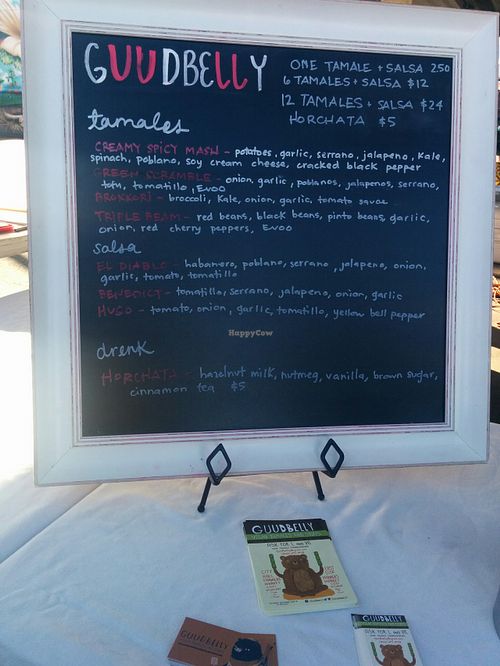 GUUDBELLY
ONE TAMALE + SALSA 2.50
6 TAMALES + SALSA $12
12 TAMALES + SALSA $24
HORCHATA $5
tamales
CREAMY SPICY MASH - potatoes, garlic, serrano, jalapeno, kale,
spinach, poblano, soy cream cheese, cracked black pepper
GREEN SCRAMBLE - onion, garlic, poblanos, jalapenos, serrano,
tofu, tomatillo, EVOO
BROKKORI - broccoli, kale, onion, garlic, tomato sauce
TRIPLE BEAM - red beans, black beans, pinto beans, garlic,
onion, red cherry peppers, EVOO
salsa
EL DIABLO - habanero, poblano, serrano, jalapeno, onion,
garlic, tomato, tomatillo
BENEDICT - tomatillo, serrano, jalapeno, onion, garlic
HUGO - tomato, onion, garlic, tomatillo, yellow bell pepper
HappyCow
drenk
HORCHATA - hazelnut milk, nutmeg, vanilla, brown sugar,
cinnamon tea $5
GUUDBELLY
GUUDBELLY
GUUDBELLY